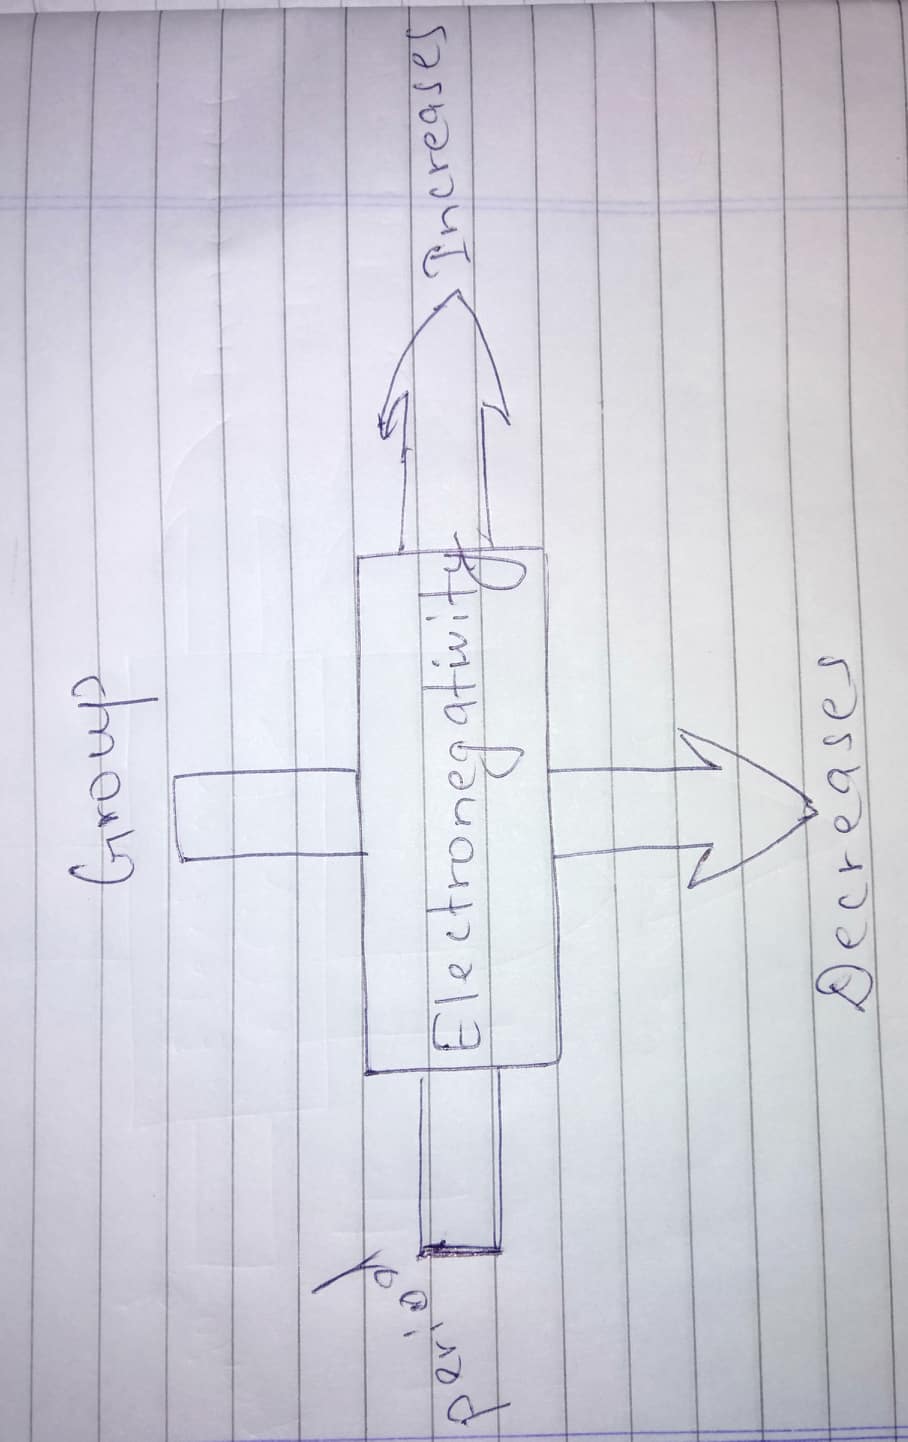 Group
period
Electronegativity
Increases
Decreases